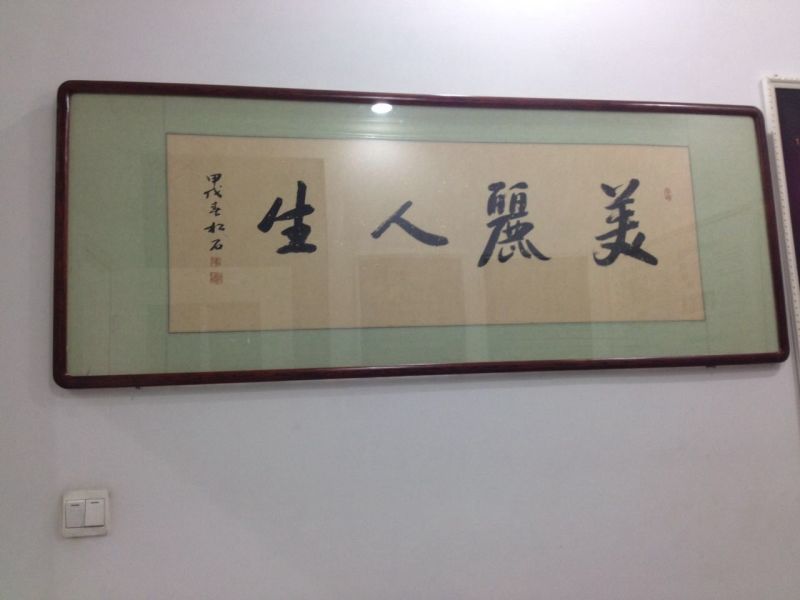 美麗人生
甲戌春松石